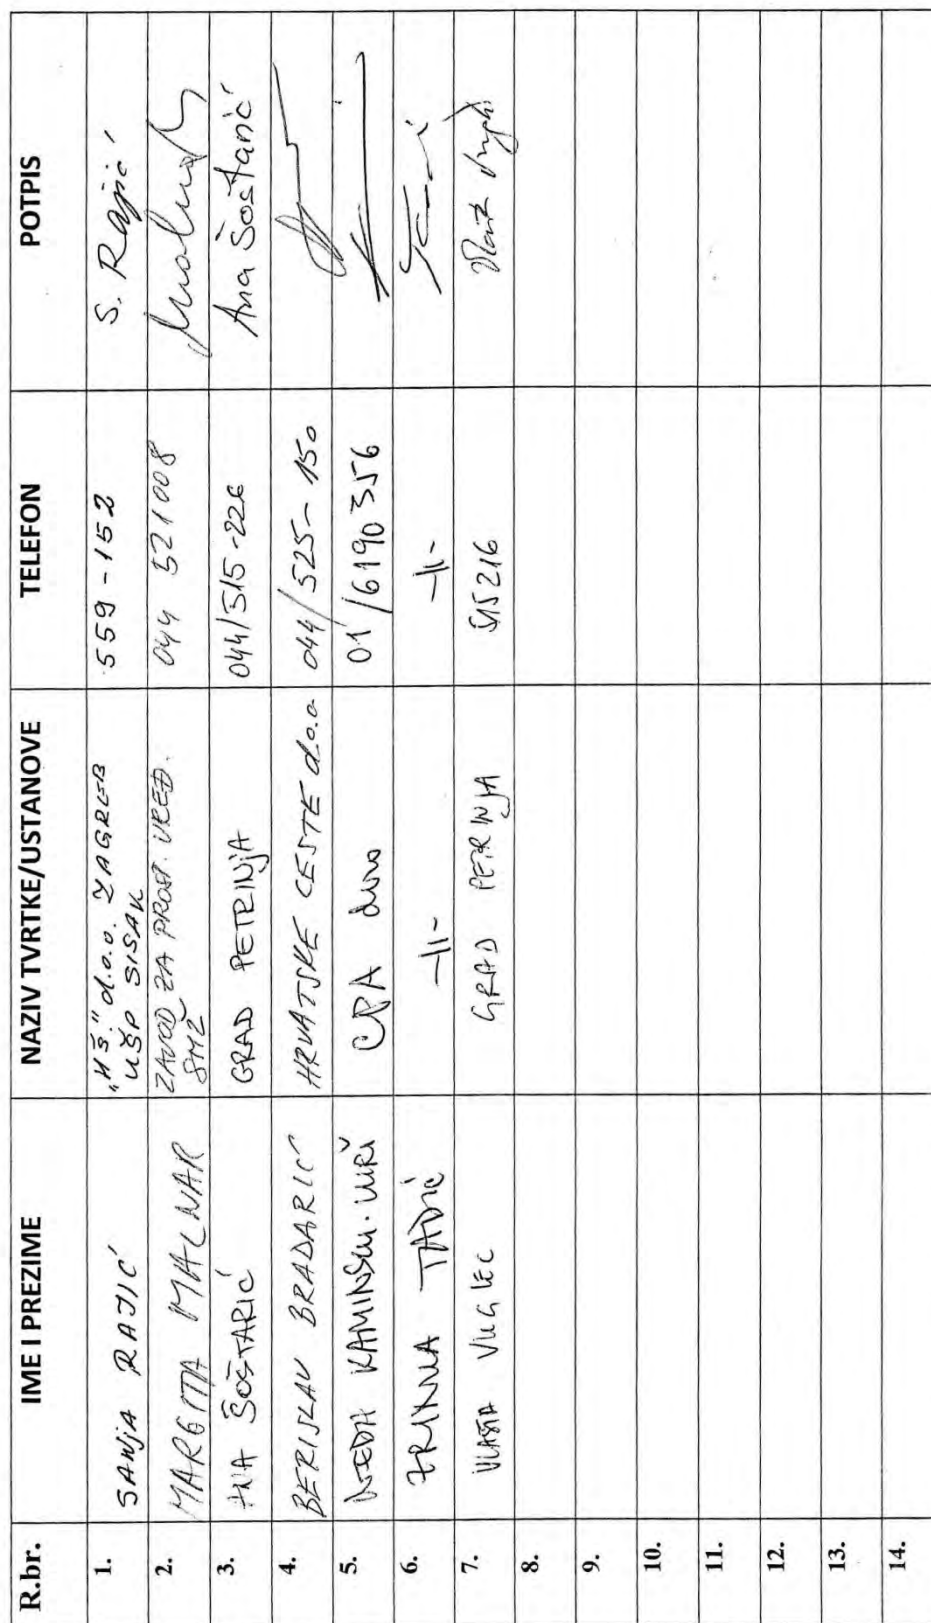 R.br. IME I PREZIME NAZIV TVRTKE/USTANOVE TELEFON POTPIS
1. SANJA RAJIĆ "HŠ." d.o.o. ZAGREB 559-152 S. Rajić
UŠP SISAK
2. MARGITA MALNAR ZAVOD ZA PROST. UREĐ. 044 521008
SMŽ
3. ANA ŠOŠTARIĆ GRAD PETRINJA 044/515-226 Ana Šoštarić
4. BERISLAV BRADARIĆ HRVATSKE CESTE d.o.o 044/525-150
5. NEDA KAMINSKI-KIRŠ CPA d.o.o 01/6190356
6. ZRINKA TADIĆ -11- -11-
7. VLASTA VUGLEC GRAD PETRINJA 515216
8.
9.
10.
11.
12.
13.
14.